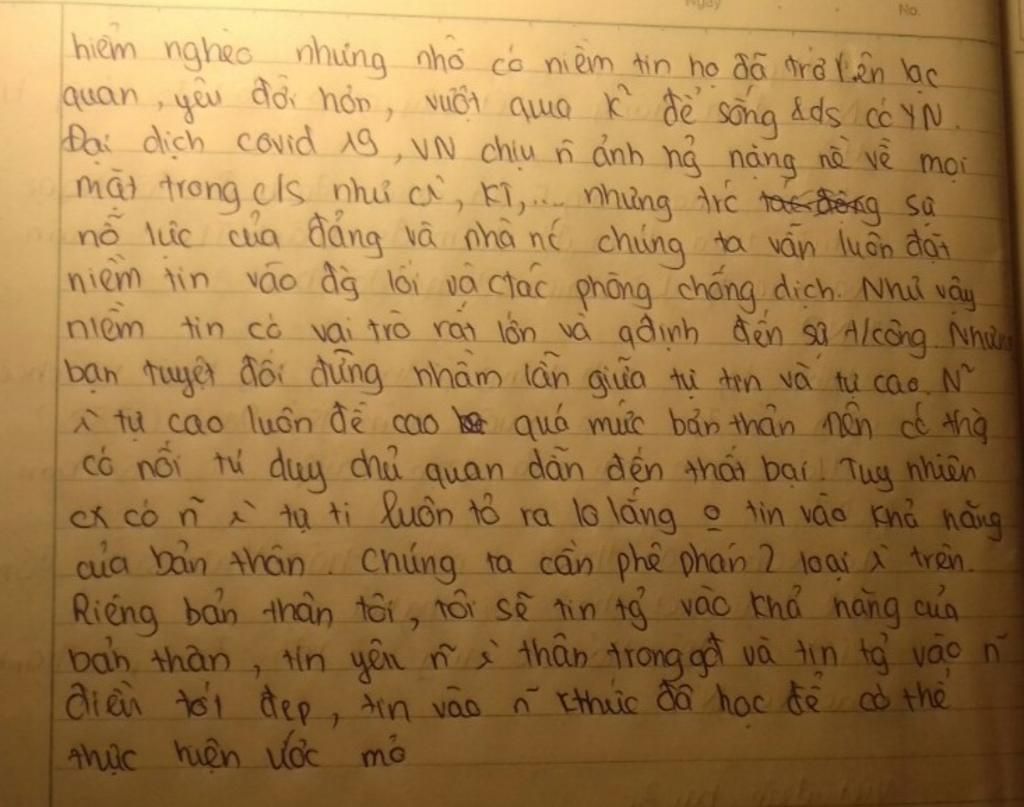 Ngày No.
hiểm nghèo nhưng nhờ có niềm tin họ đã trở lên lạc
quan, yêu đời hơn, vượt qua k² để sống &ds có YN.
Đại dịch covid 19, VN chịu ñ ảnh hg nặng nề về mọi
mặt trong c/s như ct, KT,... nhưng trc tác động sự
nỗ lực của đảng và nhà nc chúng ta vẫn luôn đặt
niềm tin vào đg lối và ctác phòng chống dịch. Như vậy
niềm tin có vai trò rất lớn và qđịnh đến sự t/công. Nhưng
bạn tuyệt đối đừng nhầm lẫn giữa tự tin và tự cao. N~
λ tự cao luôn đề cao quá mức bản thân nên có
có nối tư duy chủ quan dẫn đến thất bại. Tuy nhiên
cx có ñ λ` tự ti luôn tỏ ra lo lắng o tin vào khả năng
của bản thân. Chúng ta cần phê phán 2 loại λ trên.
Riêng bản thân tôi, tôi sẽ tin tg vào khả năng của
bản thân, tin yêu ñ λ` thân trong gđ và tin tg vào ñ
điều tốt đẹp, tin vào ñ kthức đã học để có thể
thực hiện ước mơ